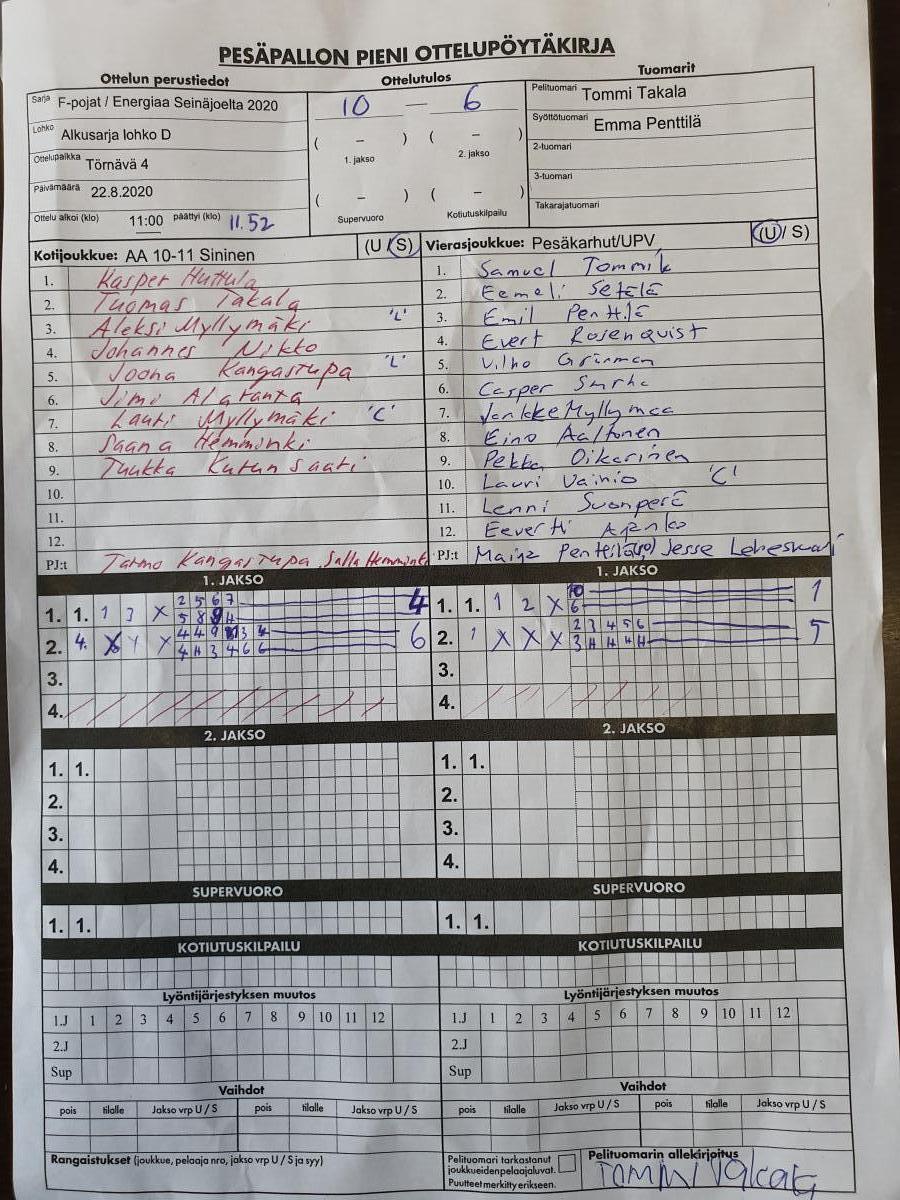 PESÄPALLON PIENI OTTELUPÖYTÄKIRJA
Ottelun perustiedot Ottelutulos Tuomarit
Sarja F-pojat / Energiaa Seinäjoelta 2020
Lohko Alkusarja lohko D
Ottelupaikka Törnävä 4
Päivämäärä 22.8.2020
Ottelu alkoi (klo) 11:00 päättyi (klo) 11.52
10 — 6
( – ) ( – )
1. jakso 2. jakso
( – ) ( – )
Supervuoro Kotiutuskilpailu
Pelituomari Tommi Takala
Syöttötuomari Emma Penttilä
2-tuomari
3-tuomari
Takarajatuomari
Kotijoukkue: AA 10-11 Sininen (U / S)
1. Kasper Huttula
2. Tuomas Takala
3. Aleksi Myllymäki 'L'
4. Johannes Nikko
5. Joona Kangastupa 'L'
6. Jimi Alaranta
7. Lauri Myllymäki 'C'
8. Saana Hemminki
9. Tuukka
10.
11.
12.
PJ:t Tarmo Kangastupa, Salla Hemminki
Vierasjoukkue: Pesäkarhut/UPV (U / S)
1. Samuel
2. Eemeli Setälä
3. Emil Penttilä
4. Evert Rosenquist
5. Vilho
6. Casper
7. Myllymaa
8. Eino Aaltonen
9. Pekka Oikarinen
10. Lauri Vainio 'C'
11. Lenni Suonperä
12. Eevertti
PJ:t Jesse
1. JAKSO 1. JAKSO
1. 1. 1 3 X 2 5 6 7 4
2. 4. 6
3.
4.
1. 1. 1 2 X 10 6 1
2. 1 X X X 2 3 4 5 6 5
3.
4.
2. JAKSO 2. JAKSO
1. 1. 1. 1.
2. 2.
3. 3.
4. 4.
SUPERVUORO SUPERVUORO
1. 1. 1. 1.
KOTIUTUSKILPAILU KOTIUTUSKILPAILU
Lyöntijärjestyksen muutos Lyöntijärjestyksen muutos
1.J 1 2 3 4 5 6 7 8 9 10 11 12 1.J 1 2 3 4 5 6 7 8 9 10 11 12
2.J 2.J
Sup Sup
Vaihdot Vaihdot
pois tilalle Jakso vrp U / S pois tilalle Jakso vrp U / S pois tilalle Jakso vrp U / S pois tilalle Jakso vrp U / S
Rangaistukset (joukkue, pelaaja nro, jakso vrp U / S ja syy)
Pelituomari tarkastanut
joukkueidenpelaajaluvat.
Puutteet merkitty erikseen.
Pelituomarin allekirjoitus
Tommi Takala